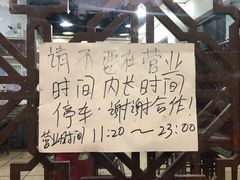 请不要在营业
时间内长时间
停车,谢谢合作!
营业时间 11:20～23:00